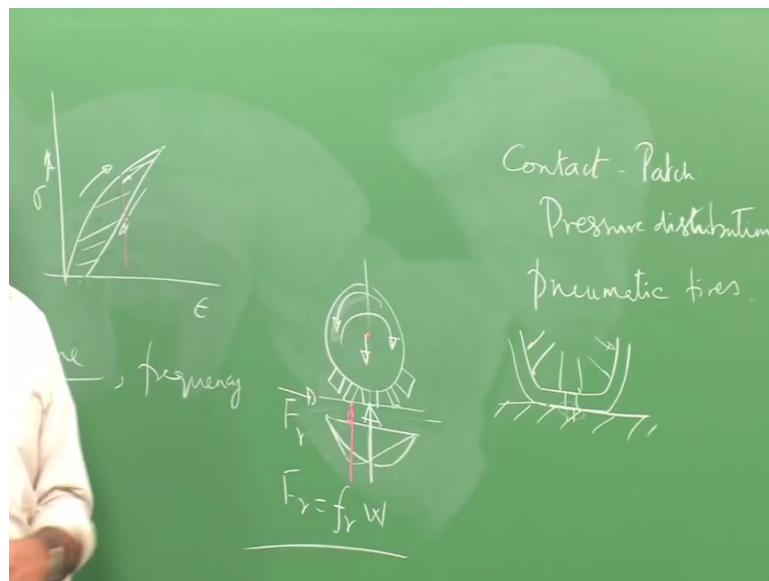 σ
ϵ
, frequency
F_r
F_r = f_r W
Contact - Patch
Pressure distribution
Pneumatic tires.